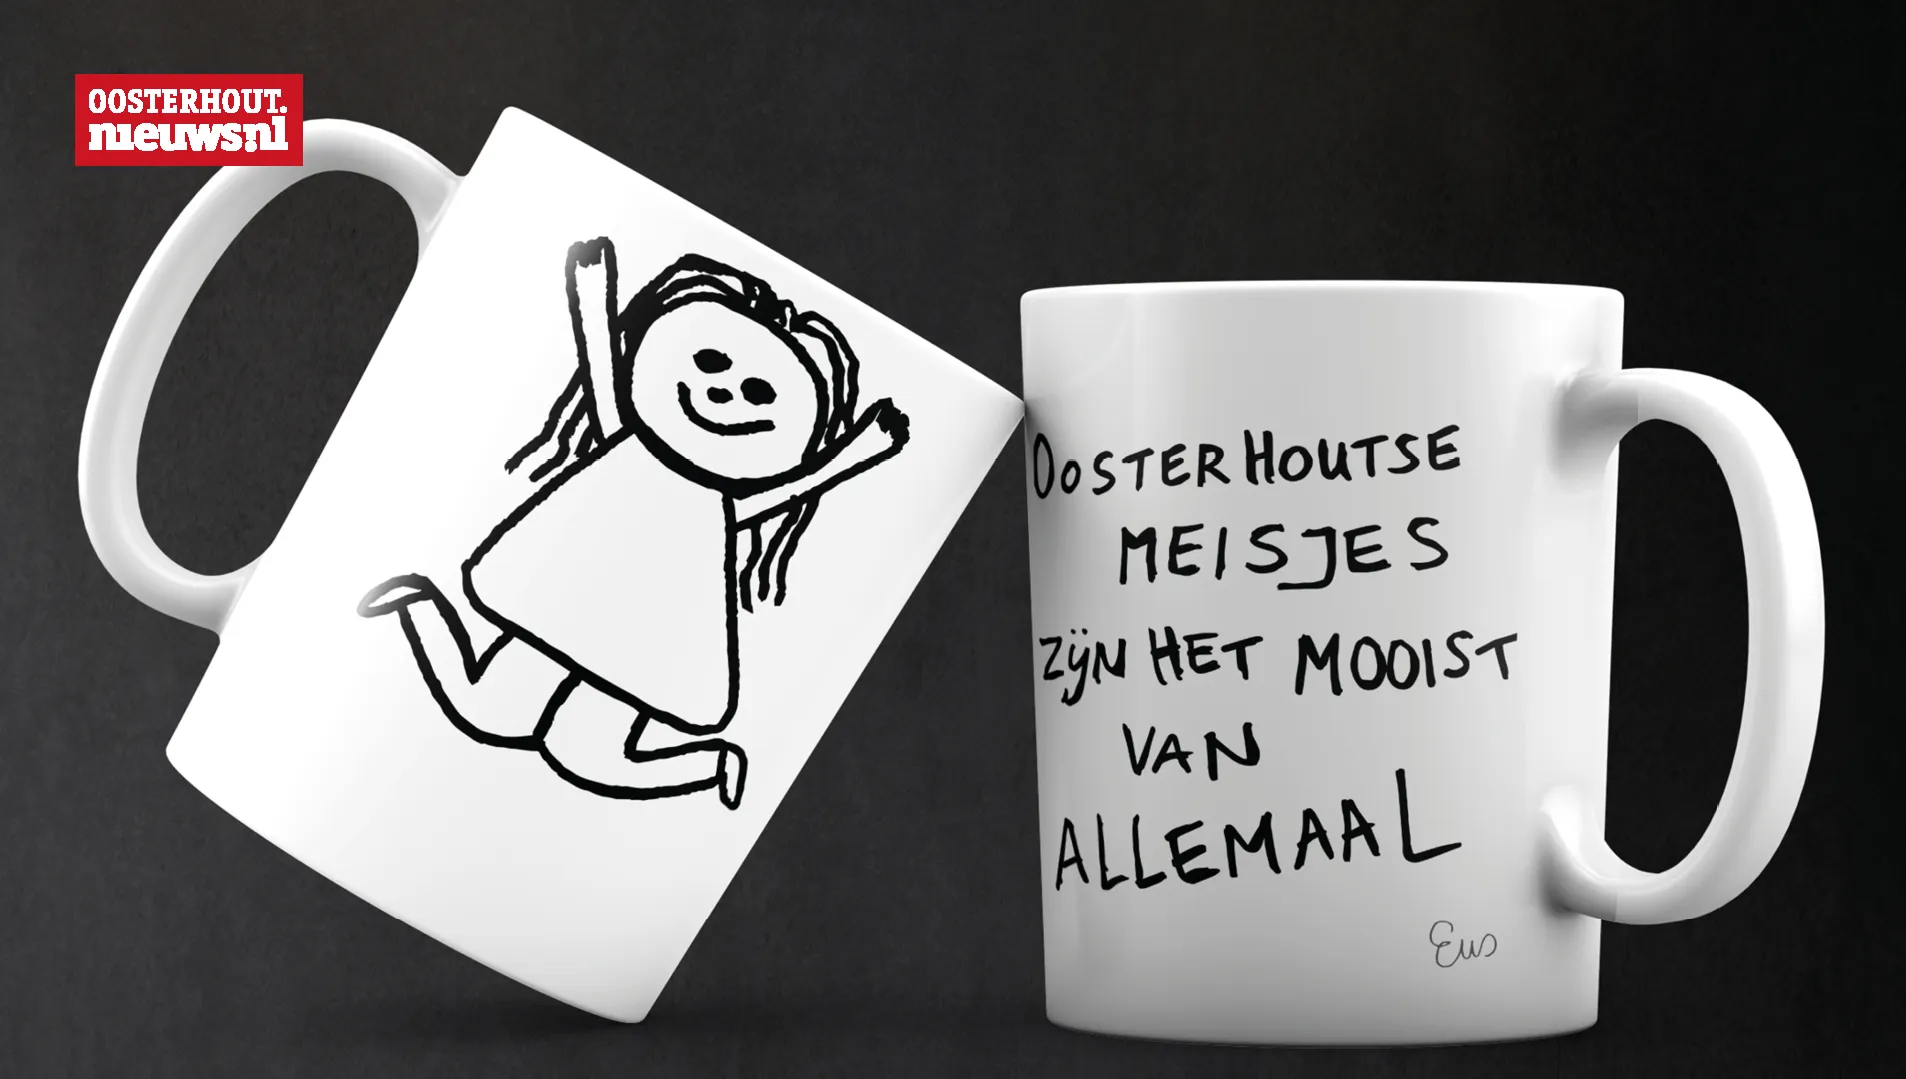 OOSTERHOUT.
nieuws.nl
OOSTERHOUTSE
MEISJES
ZIJN HET MOOIST
VAN
ALLEMAAL
Eus